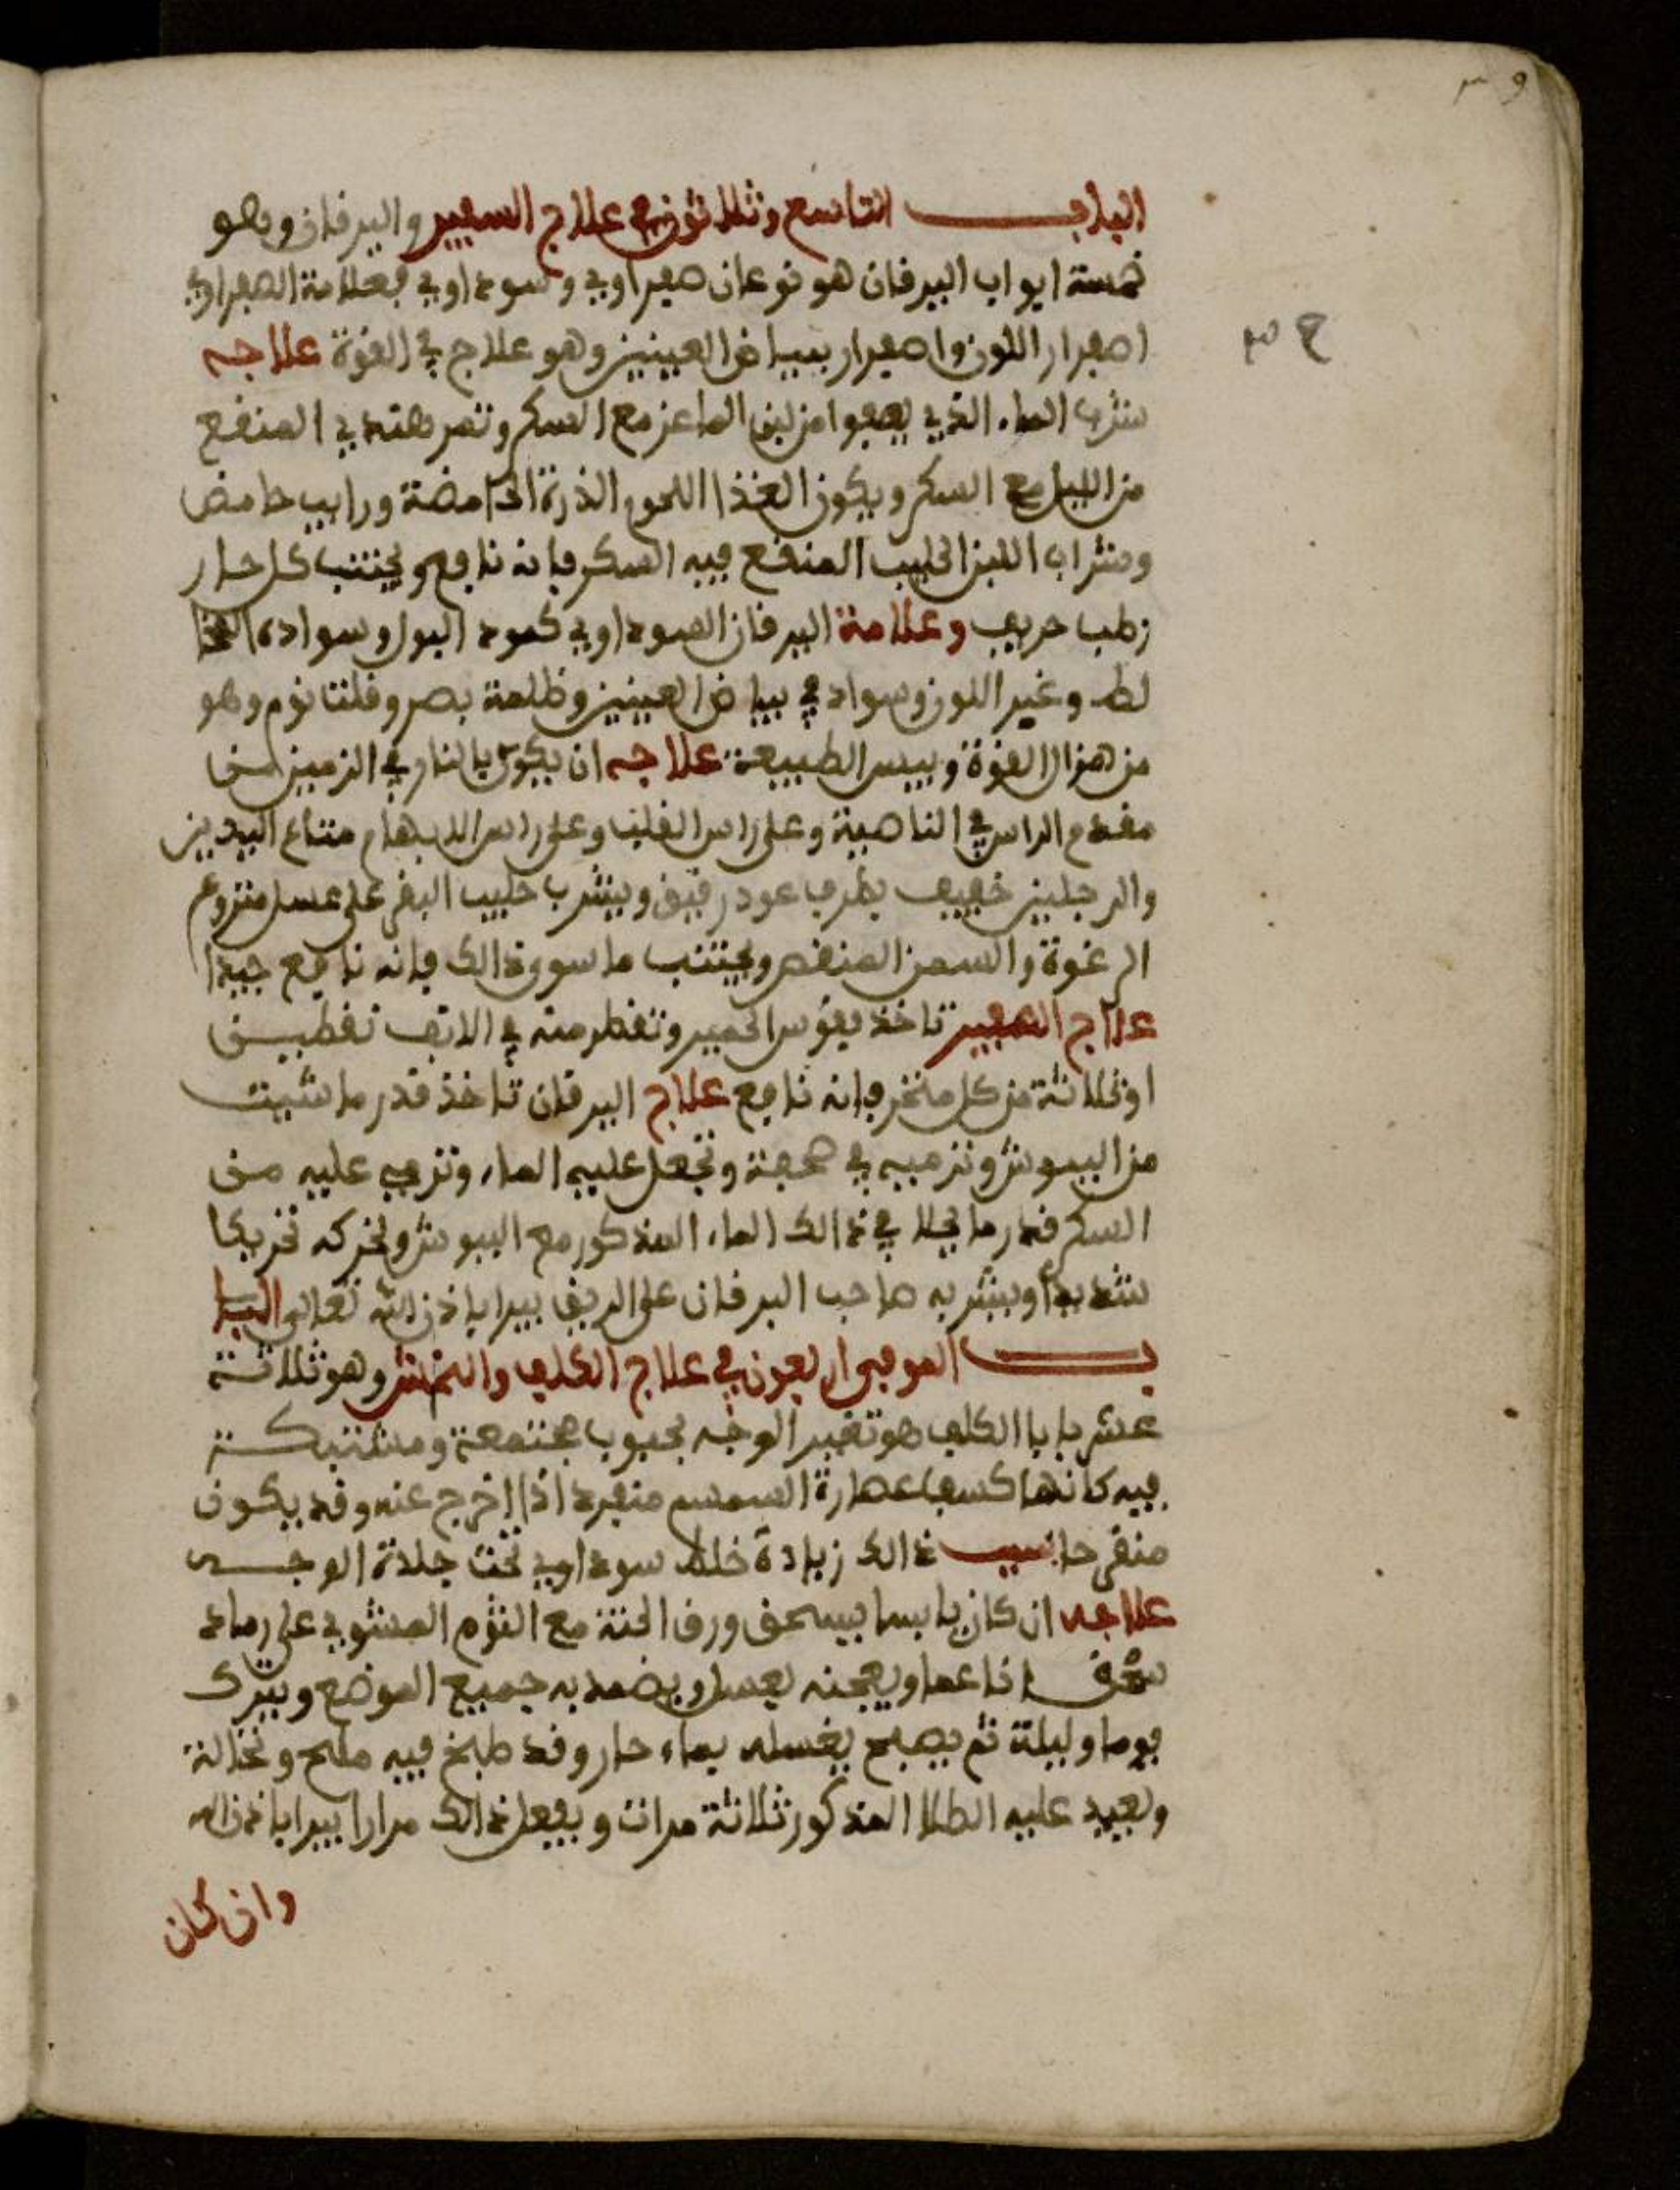 البـــاب التاسع وثلاثون في علاج السفير واليرقان وهو
خمسة ابواب اليرقان هو نوعان صفراوي وسوداوي فعلامة الصفراوي
اصفرار اللون واصفرار ببياض العينين وهو علاج في القوة علاجه
شرب الماء الذي يصفوا من لبن الماعز مع السكر وتمر هندي المنقع
من الليل مع السكر ويكون الغذا اللحو الذرة الحامضة ورايب حامض
وشراب اللبن الحليب المنقع فيه السكر فانه نافع ويجتنب كل حار
رطب حريف وعلامة اليرقان السوداوي كمود البول وسواده الغا
لظ وغير اللون وسواد في بياض العينين وظلمة بصر وقلت نوم وهو
من هزال القوة ويبس الطبيعة علاجه ان يكوى بالنار في الزمين من
مقدم الراس في الناصية وعلى راس القلب وعلى راس الابهام متاع اليدين
والرجلين خفيف بطرف عود رقيق ويشرب حليب البقر على عسل منزوع
الرغوة والسمن المنقص ويجتنب ما سوى ذالك فانه نافع جيدا
علاج السفير تاخذ فقوس الحمير وتقطر منه في الانف نقطيــن
او ثلاثة من كل منخر فانه نافع علاج اليرقان تاخذ قدر ما شيت
من الببوش وترميه في صحفة وتجعل عليه الماء وترمي عليه من
السكر قدر ما يحلا في ذالك الماء المذكور مع الببوش وتحركه تحريكا
شديدا ويشربه صاحب اليرقان على الريق يبرا باذن الله تعالى البـا
ب الموفي اربعون في علاج الكلف والنمش وهو ثلاثة
عشر بابا الكلف هو تغير الوجه بحبوب مجتمعة ومشتبكة
فيه كانها كسب عصارة السمسم منفرد اذا اخرج عنه وقد يكون
متقرحا سبب ذالك زيادة خلط سوداوي تحت جلدة الوجـه
علاجه ان كان يابسا يسحق ورق الحنة مع الثوم المشوي على رماد
سحقـا ناعما ويعجنه بعسل ويضمد به جميع الموضع ويترك
يوما وليلة ثم يصبح يغسله بماء حار وقد طبخ فيه ملح ونخالة
ويعيد عليه الطلا المذكور ثلاثة مرات ويفعل ذالك مرارا يبرا باذن الله
وان كان